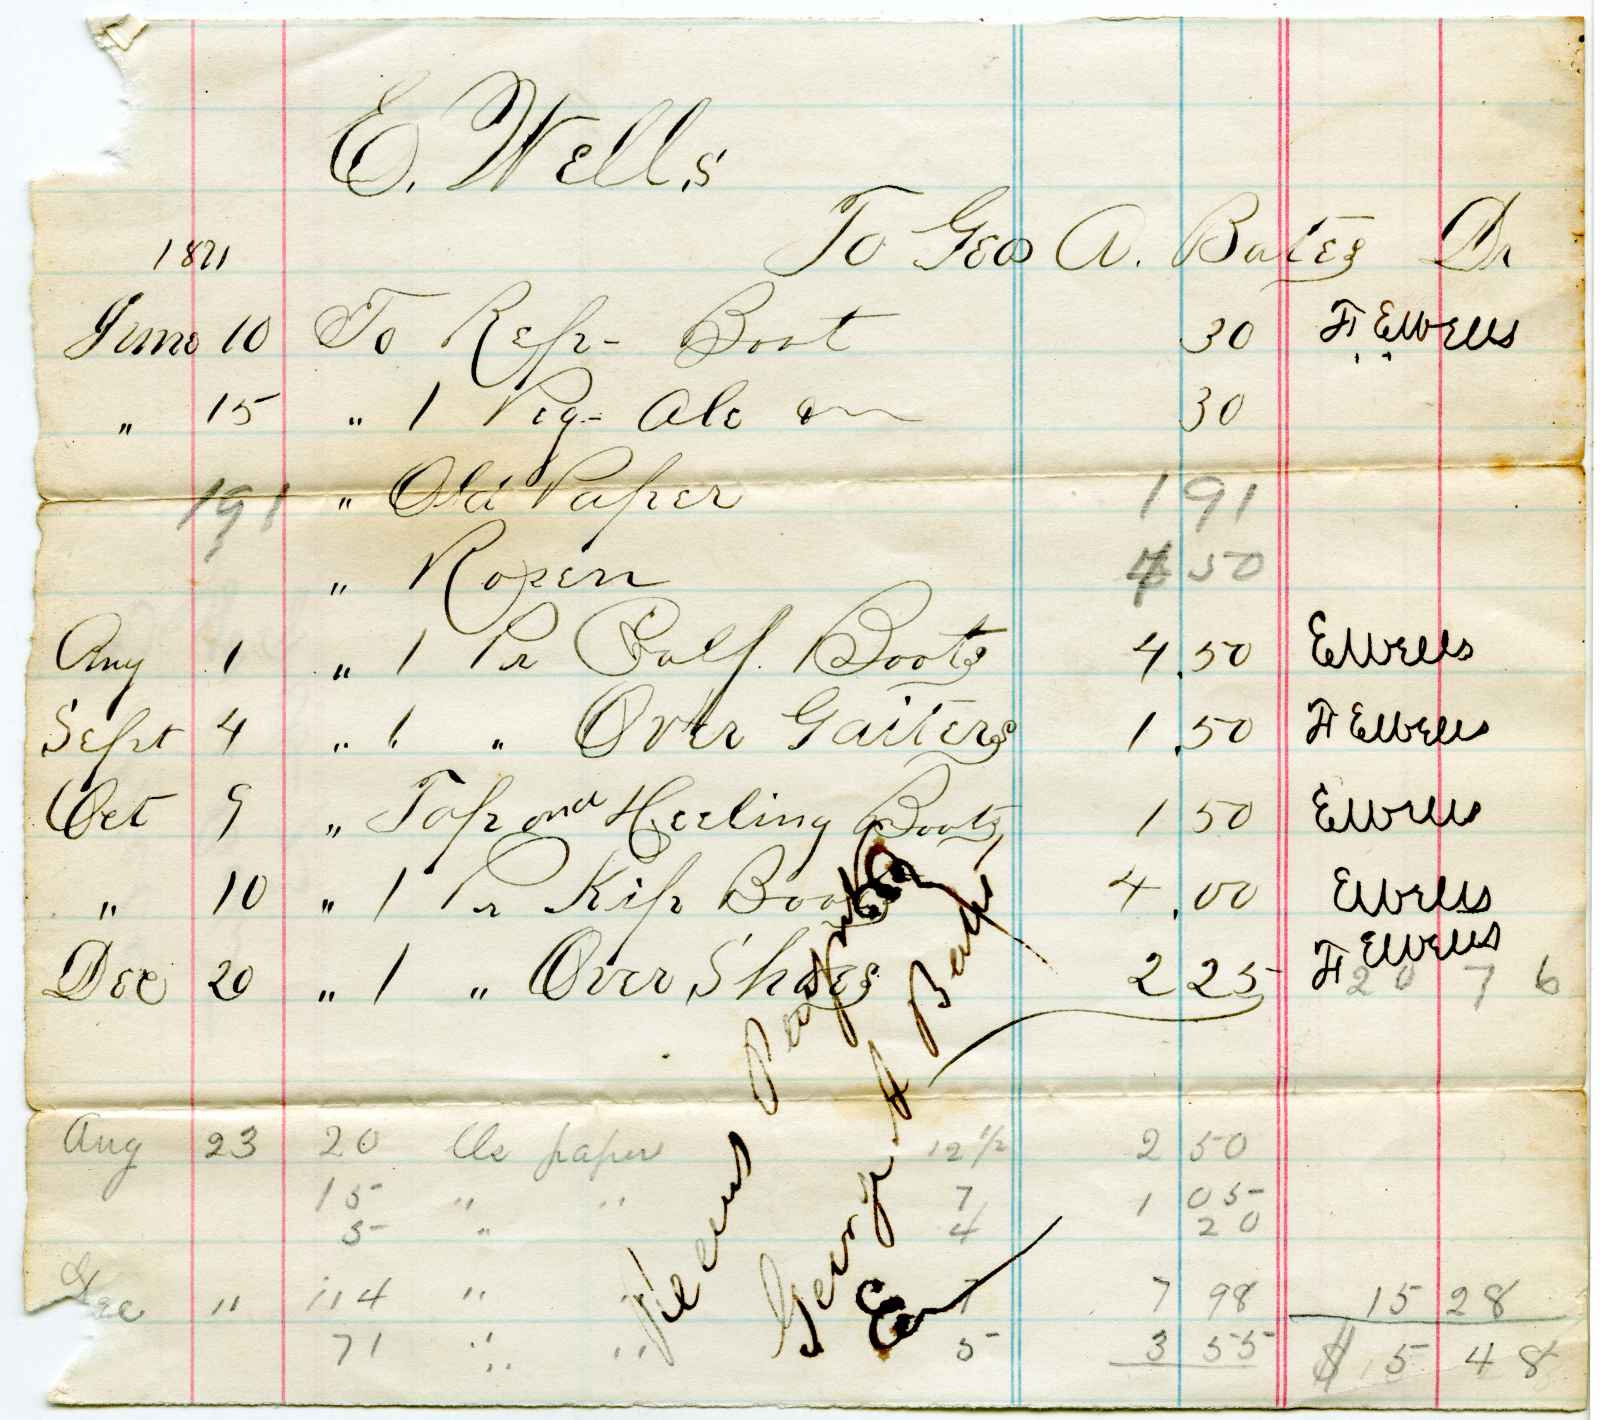 E. Wells
To Geo A. Bates Dr
1871
June 10 To Rep- Boot 30 F EWells
" 15 " 1 Peg- Ale 30
191 " Old Paper 1 91
" Rozen 4 50
Aug 1 " 1 Pr Calf Boots 4.50 EWells
Sept 4 " 1 " Over Gaiters 1.50 F EWells
Oct 9 " Tap and Heeling Boots 1 50 EWells
" 10 " 1 Pr Kip Boots 4.00 EWells
Dec 20 " 1 " Over Shoes 2 25 F EWells
20 76
Recd Payment
George A Bates
Aug 23 20 lbs paper 12 1/2 2 50
15 " " 7 1 05
5 " 4 20
Dec " 114 " 7 7 98 15 28
71 " " 5 3 55 $ 5 48